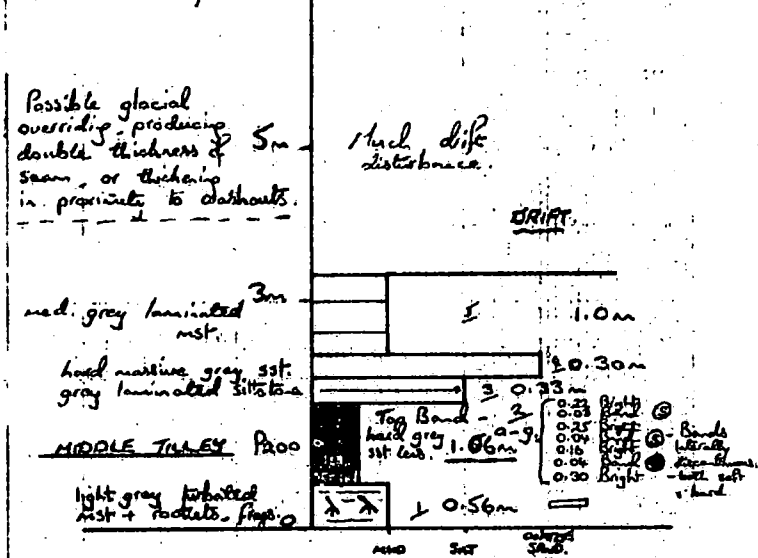 Possible glacial
overriding, producing
double thickness of
seam, or thickening
in proximity to washouts.
5m
Much drift
disturbance.
DRIFT.
3m
med. grey laminated
mst.
1.0m
hard massive grey sst.
0.30m
grey laminated siltstone
3 0.33m
Top Band - 2
hard grey a-g.
sst lens. 1.06m
0.22 Bright
0.03 Band
0.25 Bright
0.04 Band
0.16 Bright
0.04 Band
0.30 Bright
S
S - Bands
laterally
discontinuous.
- both soft
+ hard
MIDDLE TILLEY P200
light grey turbated
mst + rootlets, frags.
0
1 0.56m
MUD SILT SAND.